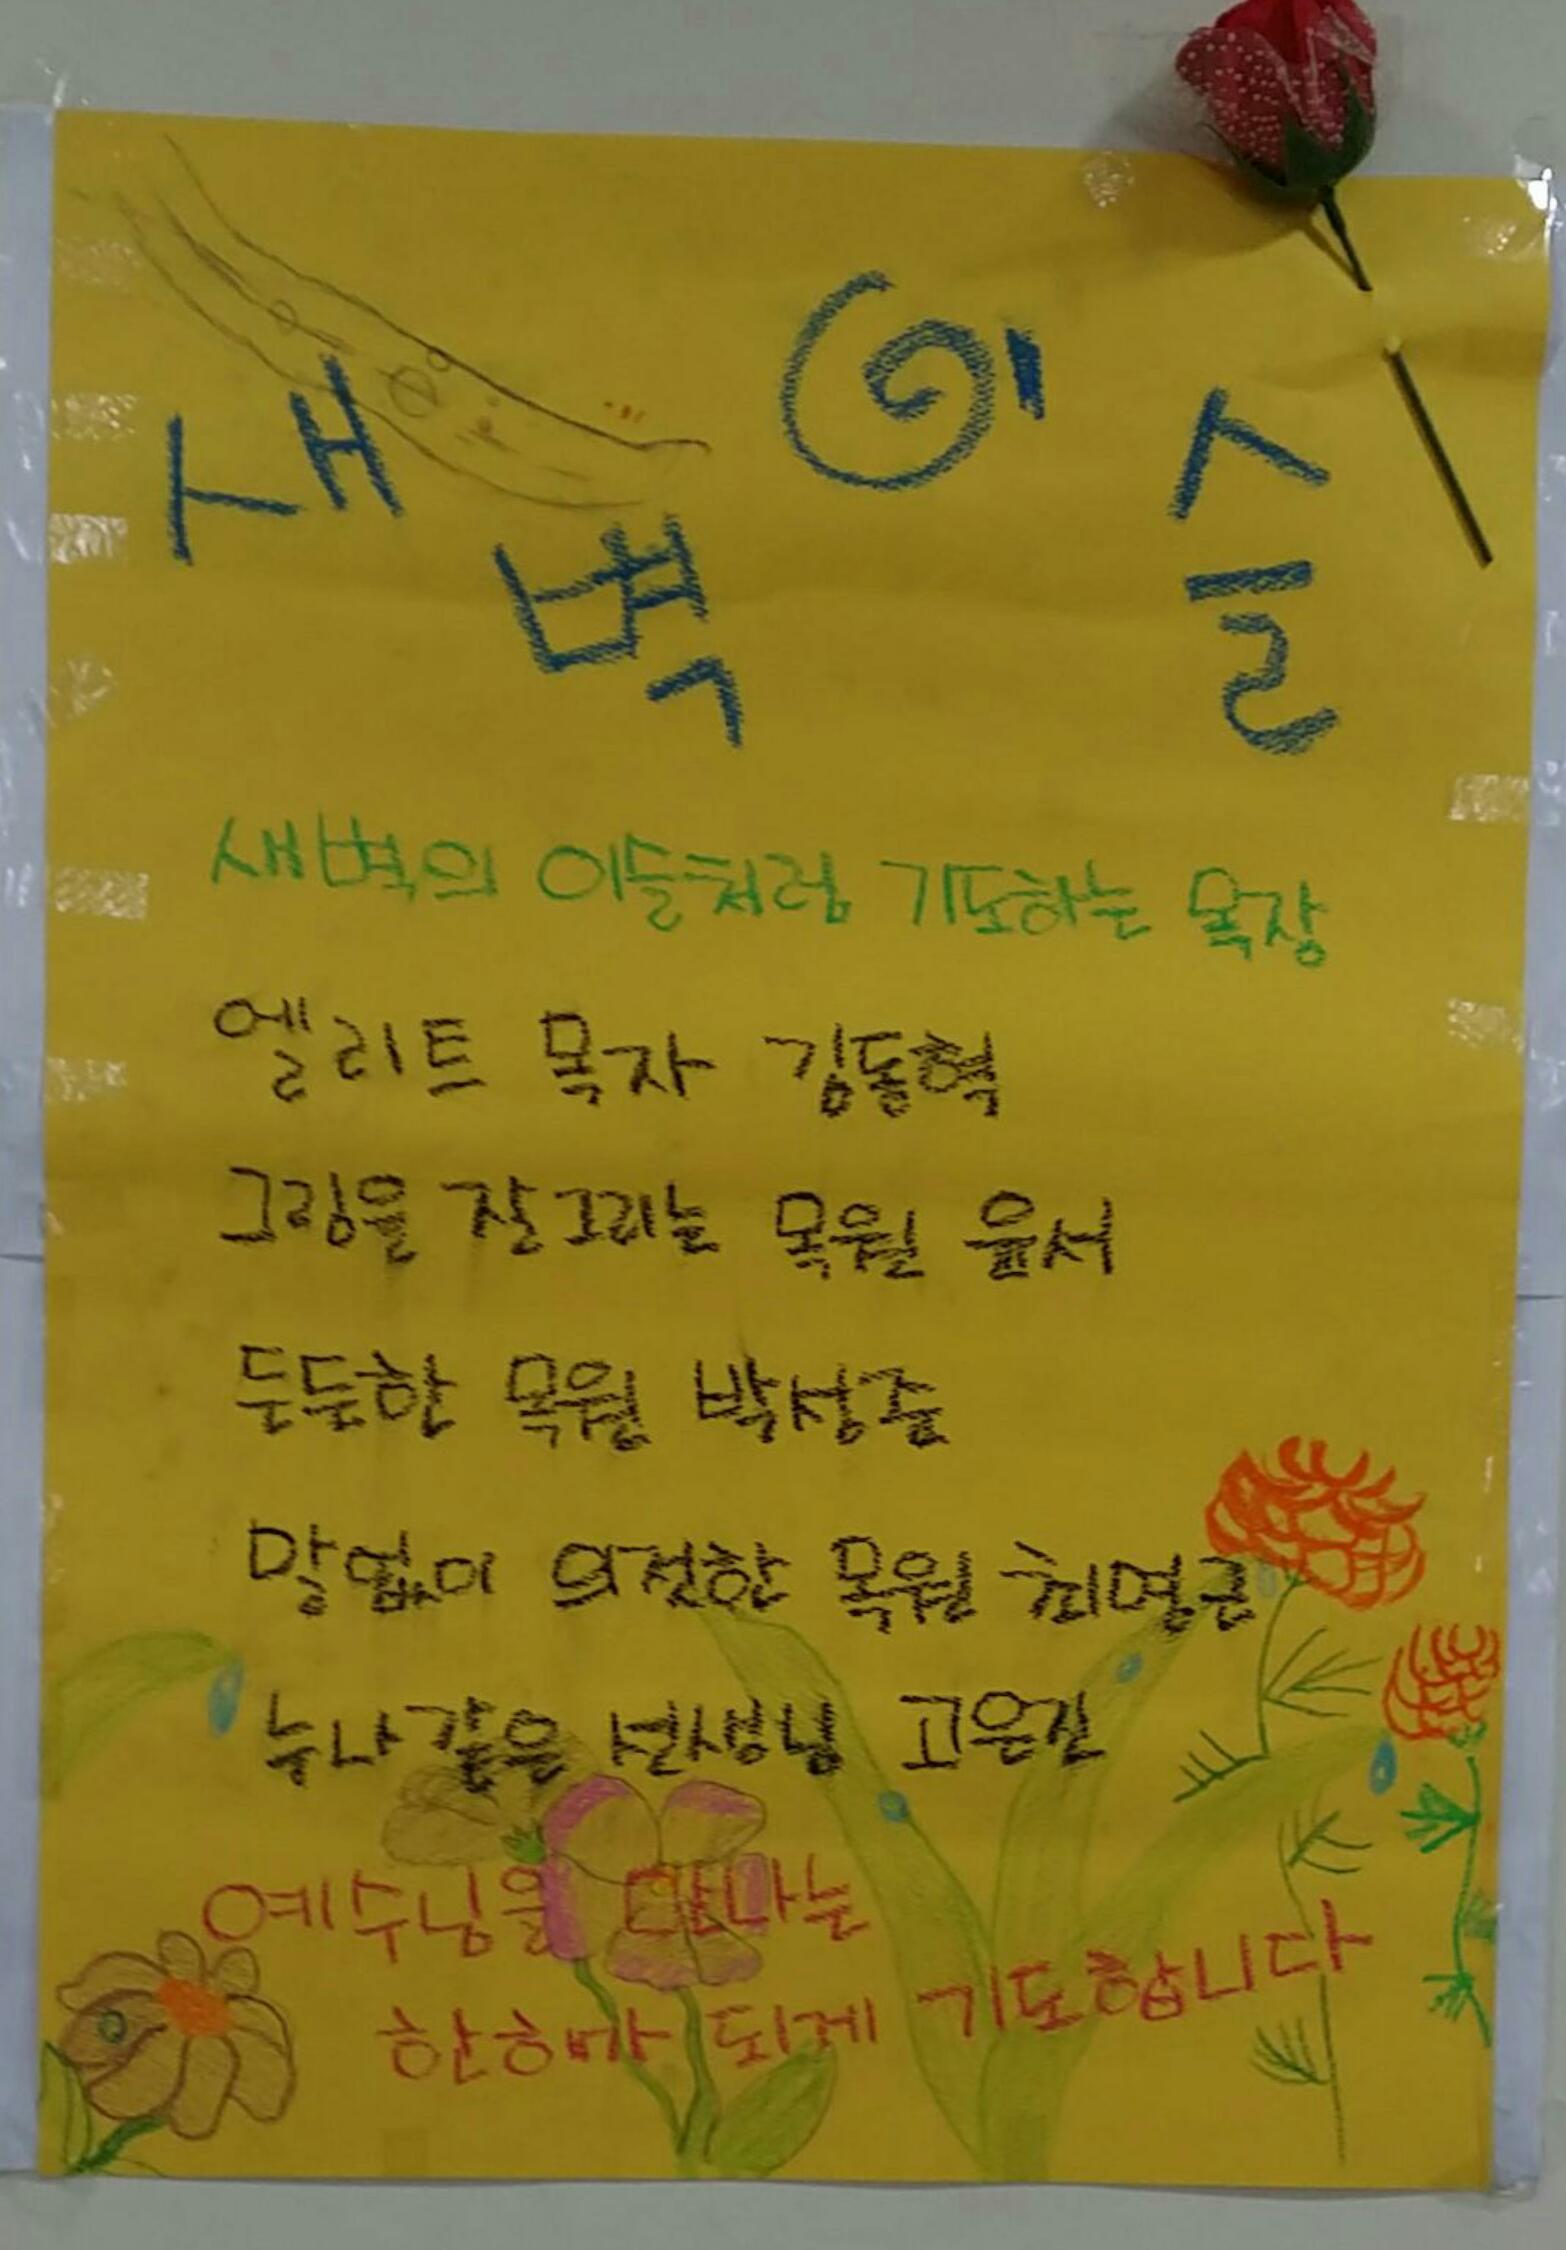 새벽 이슬
새벽의 이슬처럼 기도하는 목장
엘리트 목자 김동혁
그림을 잘그리는 목원 윤서
든든한 목원 박성준
말없이 의젓한 목원 최명근
누나같은 선생님 고은진
예수님을 만나는
한해가 되게 기도합니다